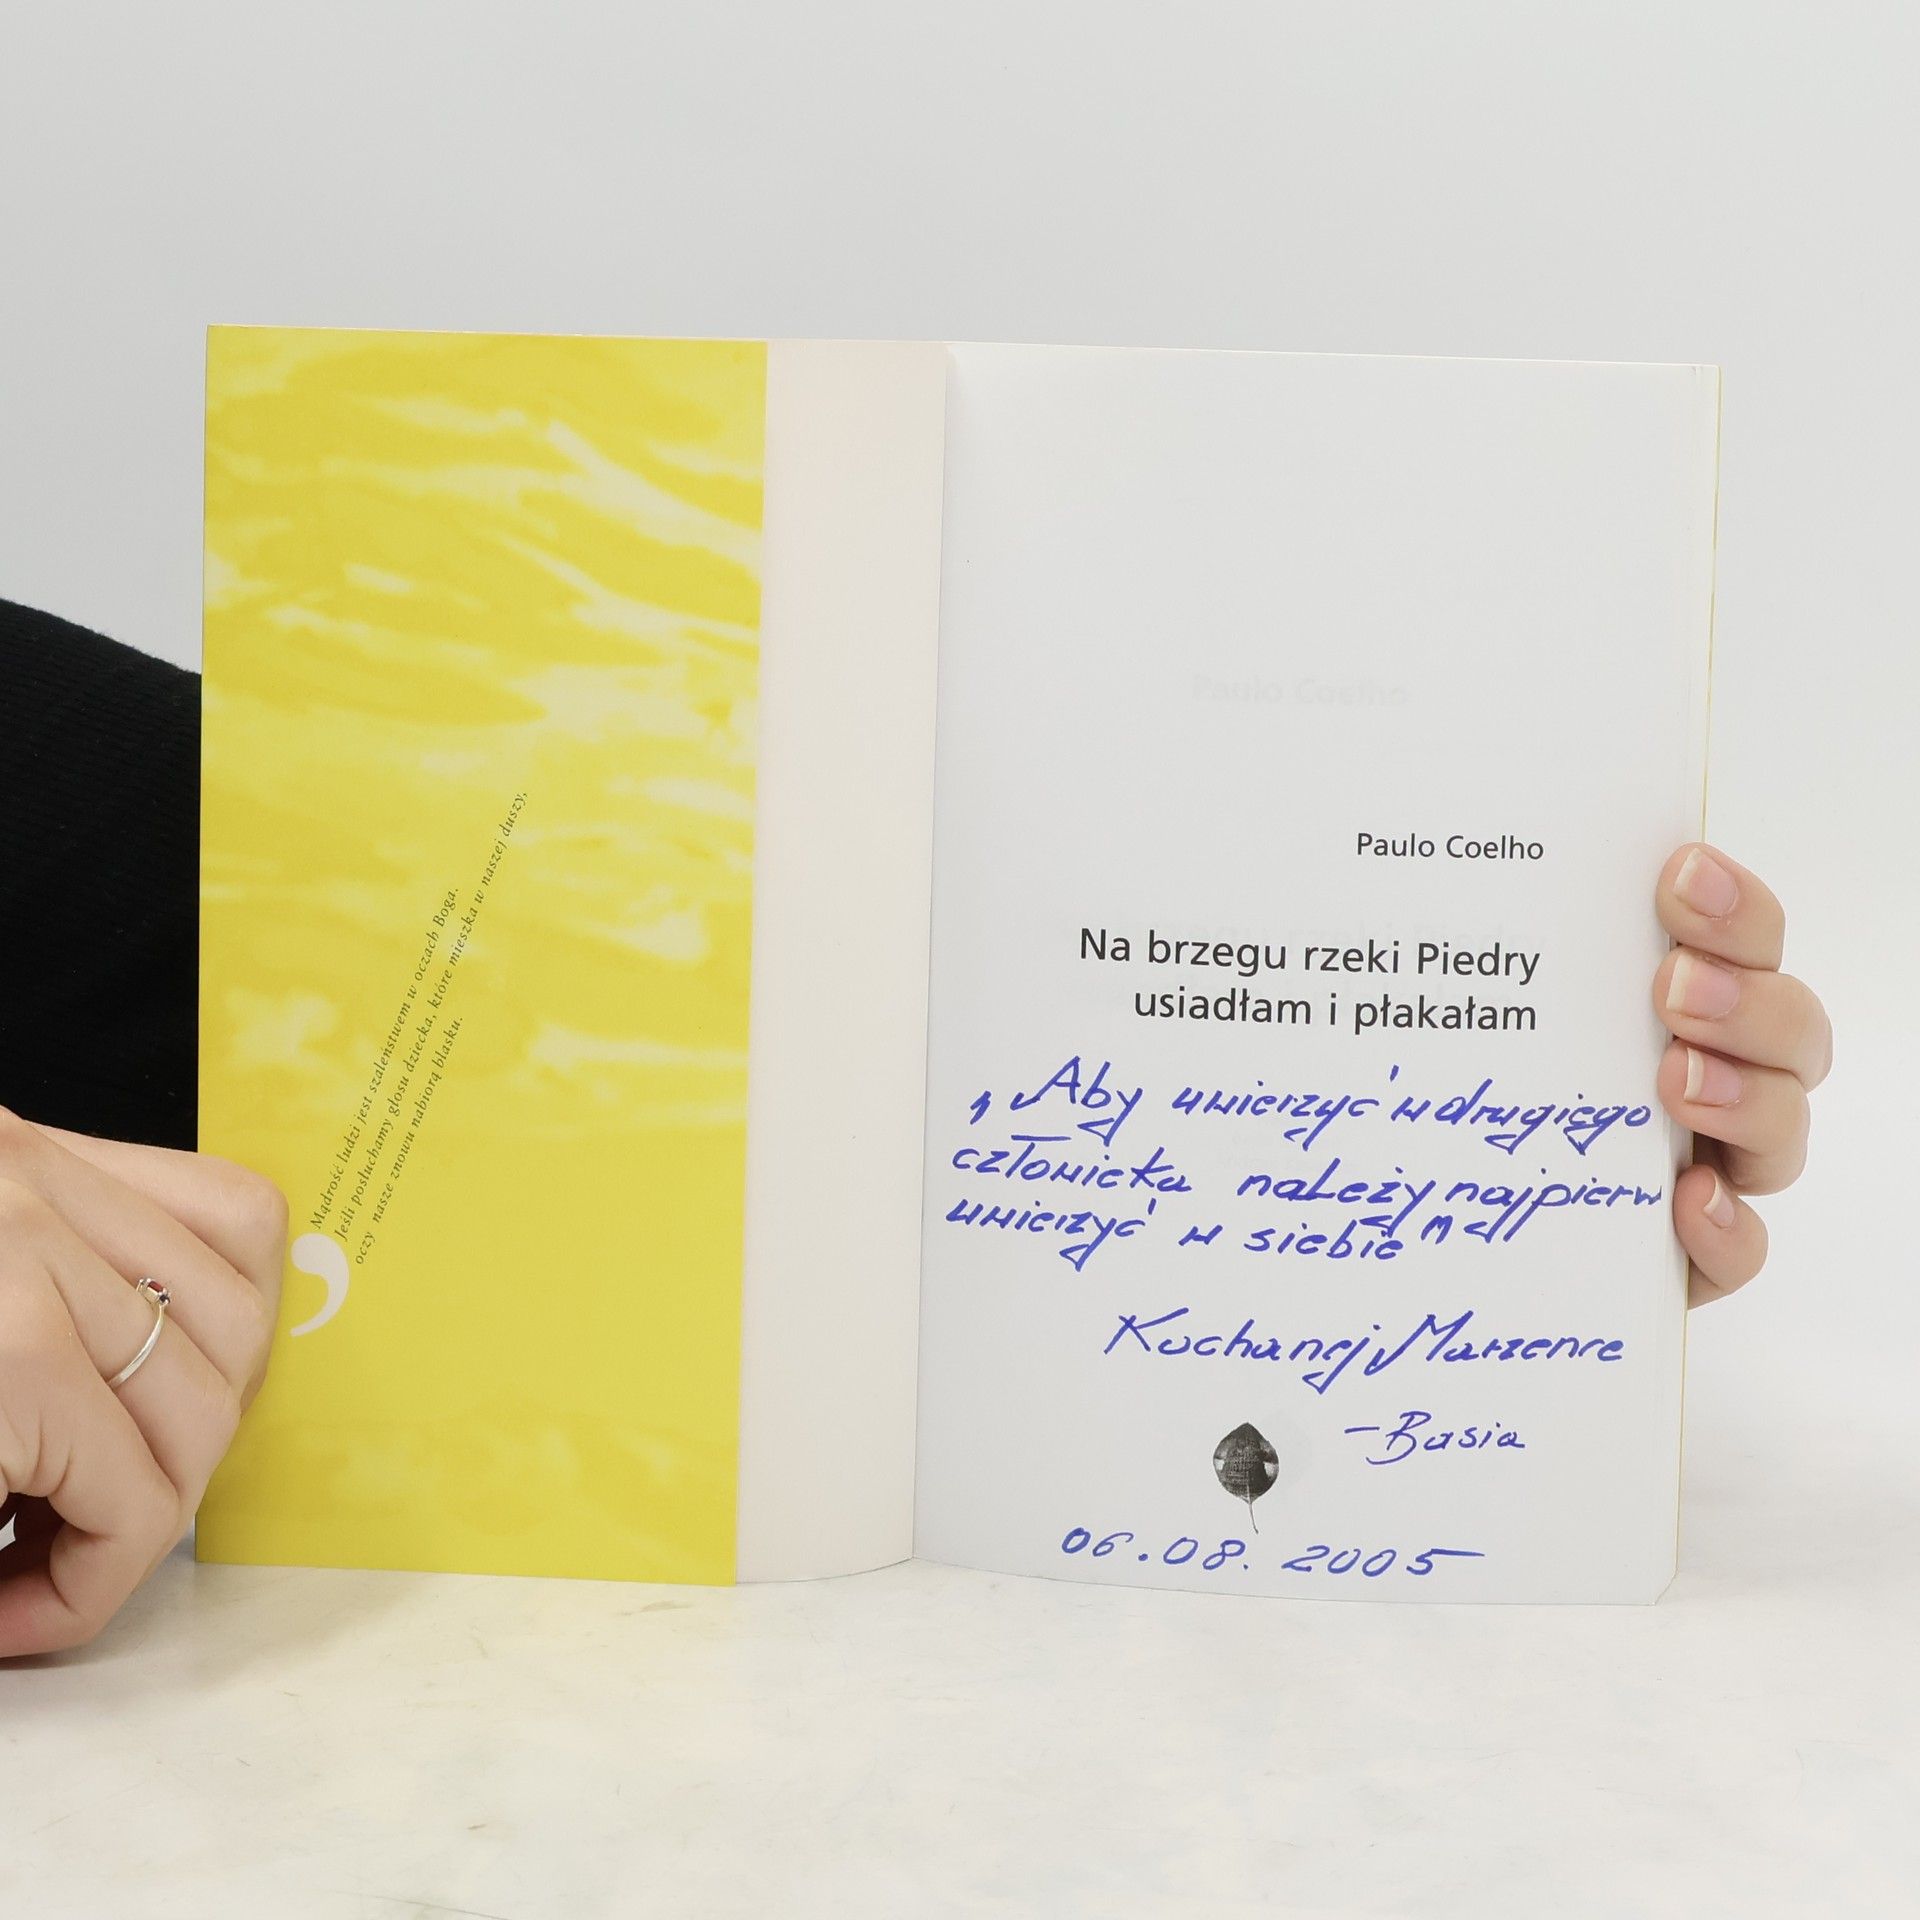 Mądrość ludzi jest szaleństwem w oczach Boga.
Jeśli posłuchamy głosu dziecka, które mieszka w naszej duszy,
oczy nasze znowu nabiorą blasku.
Paulo Coelho
Paulo Coelho
Na brzegu rzeki Piedry
usiadłam i płakałam
„Aby uwierzyć w drugiego
człowieka należy najpierw
uwierzyć w siebie”
Kochanej Marzence
– Basia
06.08.2005